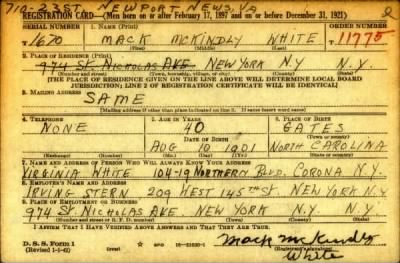 710-23ST. NEWPORT NEWS, VA
REGISTRATION CARD—(Men born on or after February 17, 1897 and on or before December 31, 1921)
SERIAL NUMBER 1. NAME (Print) ORDER NUMBER
1670 MACK McKINDLY WHITE 11775
(First) (Middle) (Last)
2. PLACE OF RESIDENCE (Print)
974 St. NICHOLAS AVE. NEW YORK N.Y N.Y.
(Number and street) (Town, township, village, or city) (County) (State)
[THE PLACE OF RESIDENCE GIVEN ON THE LINE ABOVE WILL DETERMINE LOCAL BOARD
JURISDICTION; LINE 2 OF REGISTRATION CERTIFICATE WILL BE IDENTICAL]
3. MAILING ADDRESS
SAME
[Mailing address if other than place indicated on line 2. If same insert word same]
4. TELEPHONE 5. AGE IN YEARS 6. PLACE OF BIRTH
NONE 40 GATES
DATE OF BIRTH (Town or county)
AUG 10 1901 NORTH CAROLINA
(Exchange) (Number) (Mo.) (Day) (Yr.) (State or country)
7. NAME AND ADDRESS OF PERSON WHO WILL ALWAYS KNOW YOUR ADDRESS
VIRGINIA WHITE 104-19 NORTHERN BLVD. CORONA N.Y.
8. EMPLOYER'S NAME AND ADDRESS
IRVING STERN 209 WEST 145TH ST. NEW YORK N.Y
9. PLACE OF EMPLOYMENT OR BUSINESS
974 ST. NICHOLAS AVE. NEW YORK N.Y N.Y.
(Number and street or R. F. D. number) (Town) (County) (State)
I AFFIRM THAT I HAVE VERIFIED ABOVE ANSWERS AND THAT THEY ARE TRUE.
D. S. S. Form 1
(Revised 1-1-42) Mack McKindly
White